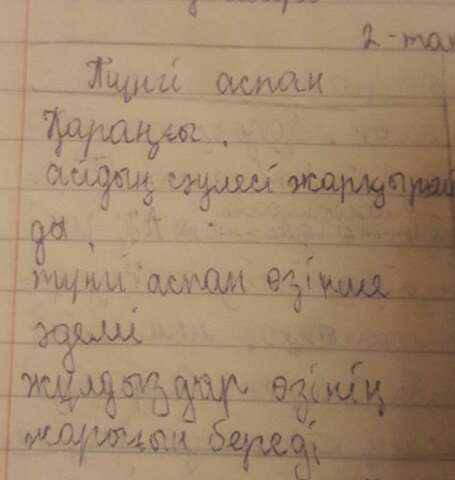 2-тап
Түнгі аспан
Қараңғы.
айдың сәулесі жарқырай
ды,
түнгі аспан өзінше
әдемі
жұлдыздар өзінің
жарығын береді